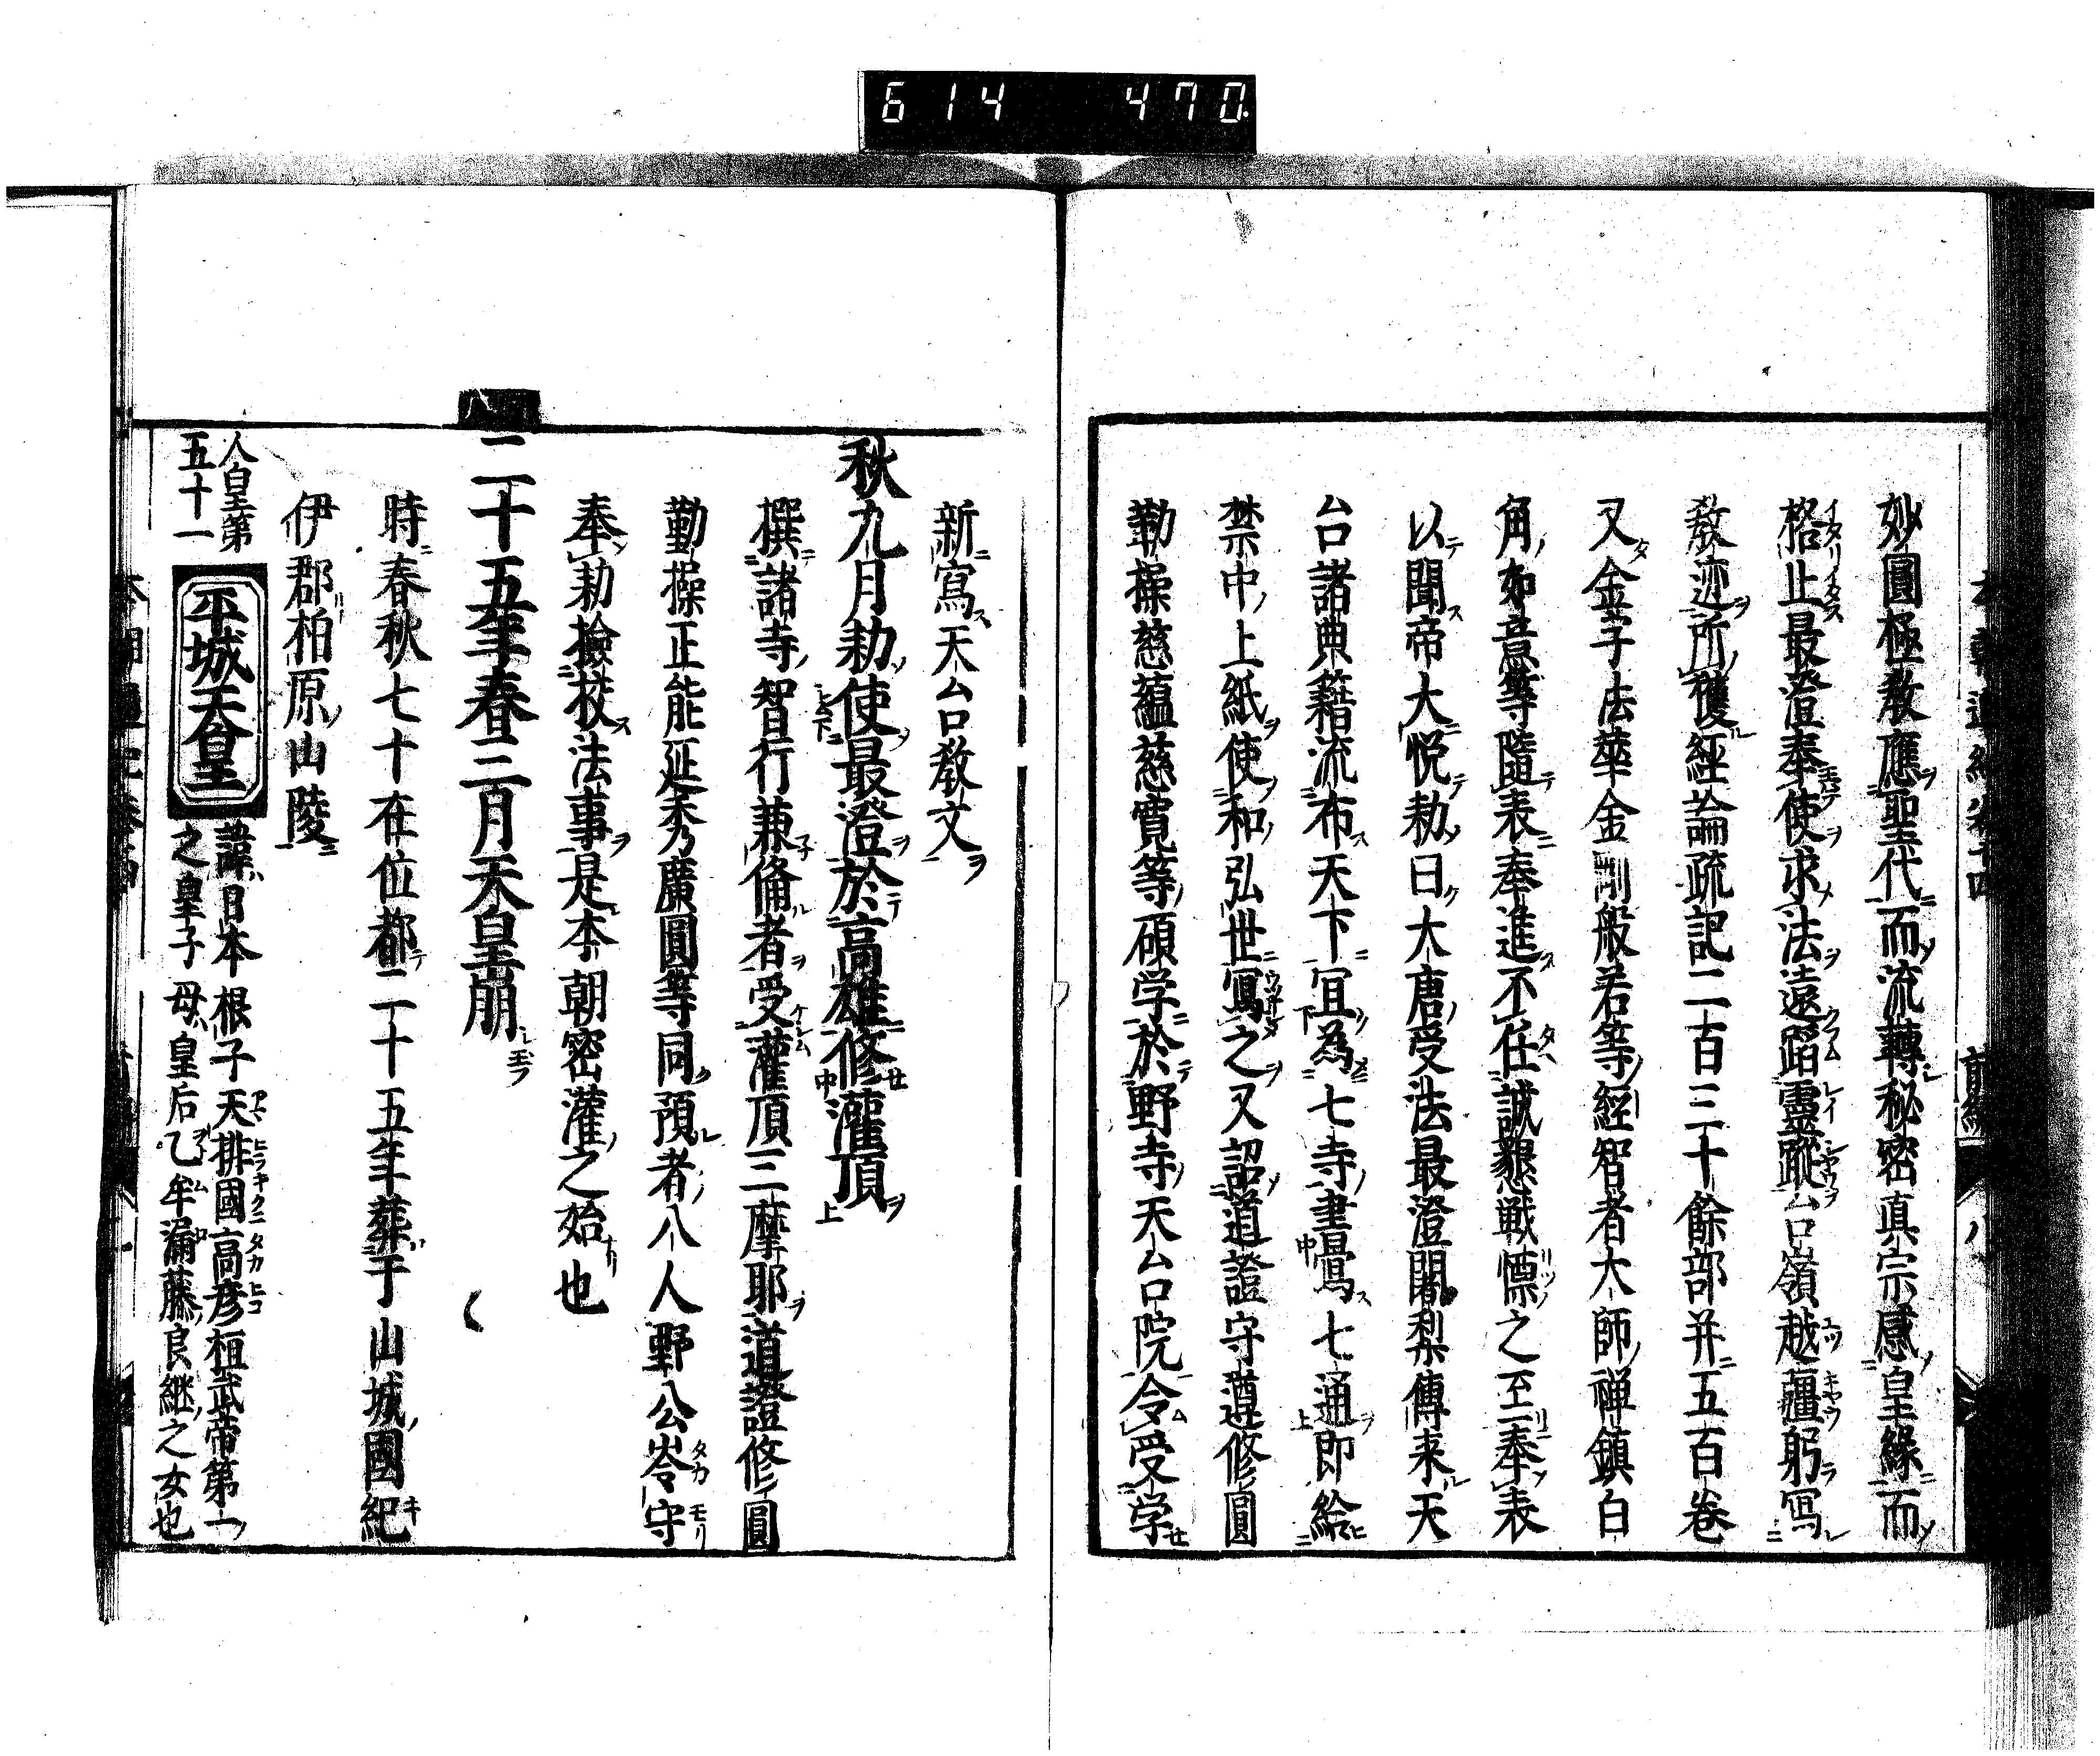 614 470
妙圓極教應聖代而流轉秘密真宗感皇緣而
格止最澄奉使求法遠蹈靈蹤台嶺越疆躬寫
教迹所獲經論疏記二百三十餘部并五百卷
又金字法華金剛般若等經智者大師禅鎮白
角如意等隨表奉進不任誠懇戰慄之至奉表
以聞帝大悅勅曰大唐受法最澄闍梨傳来天
台諸典籍流布天下宜為七寺書寫七通即給
禁中上紙使和弘世寫之又詔道證守遵修圓
勤操慈蘊慈寬等碩学於野寺天台院令受学
新寫天台教文
秋九月勅使最澄於高雄修灌頂
撰諸寺智行兼偹者受灌頂三摩耶道證修圓
勤操正能延秀廣圓等同預者八人野公岑守
奉勅撿挍法事是本朝密灌之始也
二十五年春三月天皇崩
時春秋七十在位都二十五年葬于山城國紀
伊郡柏原山陵
人皇第五十一
平城天皇
諱日本根子天排國高彥桓武帝第一
之皇子母皇后乙牟漏藤良継之女也